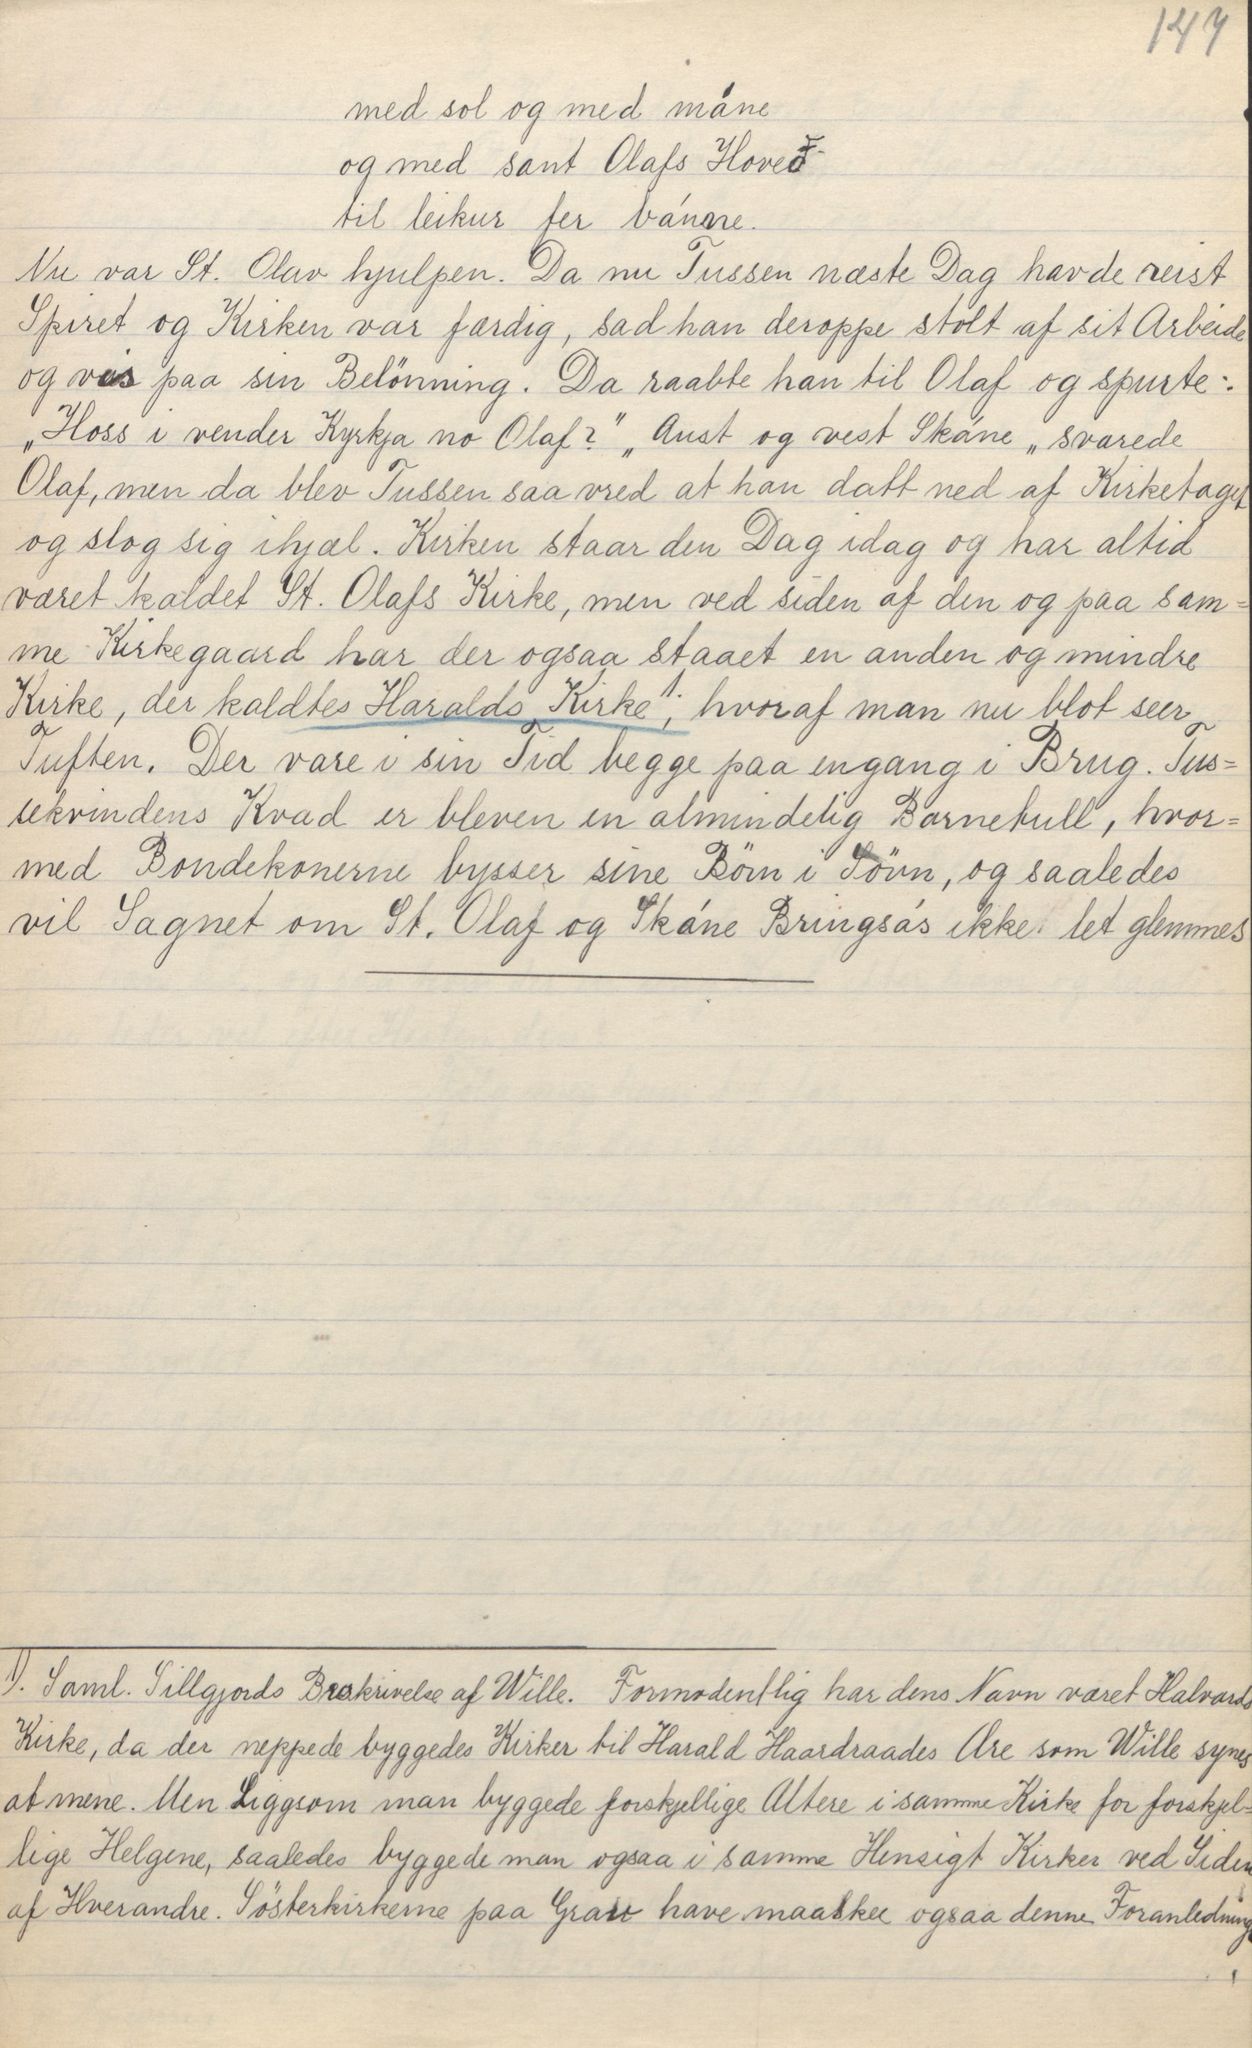 147
med sol og med máne
og med sant Olafs Hoved
til leikur fer bánne.
Nu var St. Olav hjulpen. Da nu Tussen næste Dag havde reist
Spiret og Kirken var færdig, sad han deroppe stolt af sit Arbeide
og vis paa sin Belönning. Da raabte han til Olaf og spurte:
„Hoss i vender Kyrkja no Olaf?" „Aust og vest Skáne„ svarede
Olaf, men da blev Tussen saa vred at han datt ned af Kirketaget
og slog sig ihjæl. Kirken staar den Dag idag og har altid
været kaldet St. Olafs Kirke, men ved siden af den og paa sam=
me Kirkegaard har der ogsaa staaet en anden og mindre
Kirke, der kaldtes Haralds Kirke 1; hvoraf man nu blot seer
Tuften. Der vare i sin Tid begge paa engang i Brug. Tus=
sekvindens Kvad er bleven en almindelig Barnebull, hvor=
med Bondekonerne bysser sine Börn i Sövn, og saaledes
vil Sagnet om St. Olaf og Skáne Bringsás ikke let glemmes
1). Saml. Sillgjords Beskrivelse af Wille. Formodentlig har dens Navn været Halvards
Kirke, da der neppede byggedes Kirker til Harald Haardraades Ære som Wille synes
at mene. Men Liggsom man byggede forskjellige Altere i samme Kirke for forskjel=
lige Helgene, saaledes byggede man ogsaa i samme Hensigt Kirker ved Siden
af Hverandre. Sösterkirkerne paa Gran have maaskee ogsaa denne Foranledning